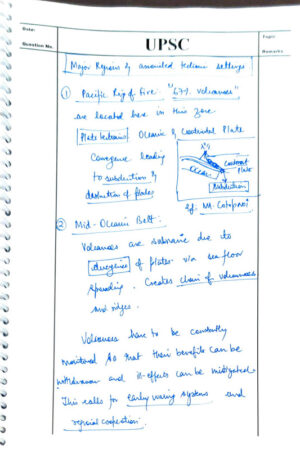 Date:
Question No.
UPSC
Topic
Remarks
Major Regions & associated tectonic settings
① Pacific Ring of Fire: "67% Volcanoes"
are located here in this zone
Plate tectonics Oceanic & Continental Plate
Convergence leading
to subduction &
destruction of plates
Continental
Plate
Oceanic
Subduction
eg: Mt. Cotopaxi
② Mid-Oceanic Belt:
Volcanoes are submarine due to
divergence of plates via sea floor
spreading. Creates chain of volcanoes
and ridges.
Volcanoes have to be constantly
monitored so that their benefits can be
and ill-effects can be mitigated.
This calls for early warning systems and
regional cooperation.